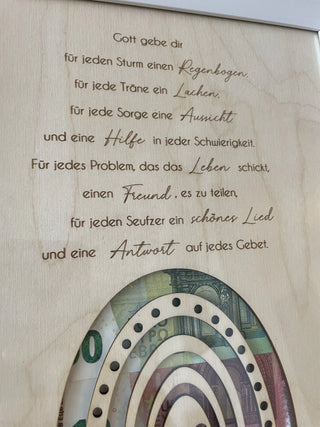 Gott gebe dir
für jeden Sturm einen Regenbogen,
für jede Träne ein Lachen,
für jede Sorge eine Aussicht
und eine Hilfe in jeder Schwierigkeit.
Für jedes Problem, das das Leben schickt,
einen Freund, es zu teilen,
für jeden Seufzer ein schönes Lied
und eine Antwort auf jedes Gebet.